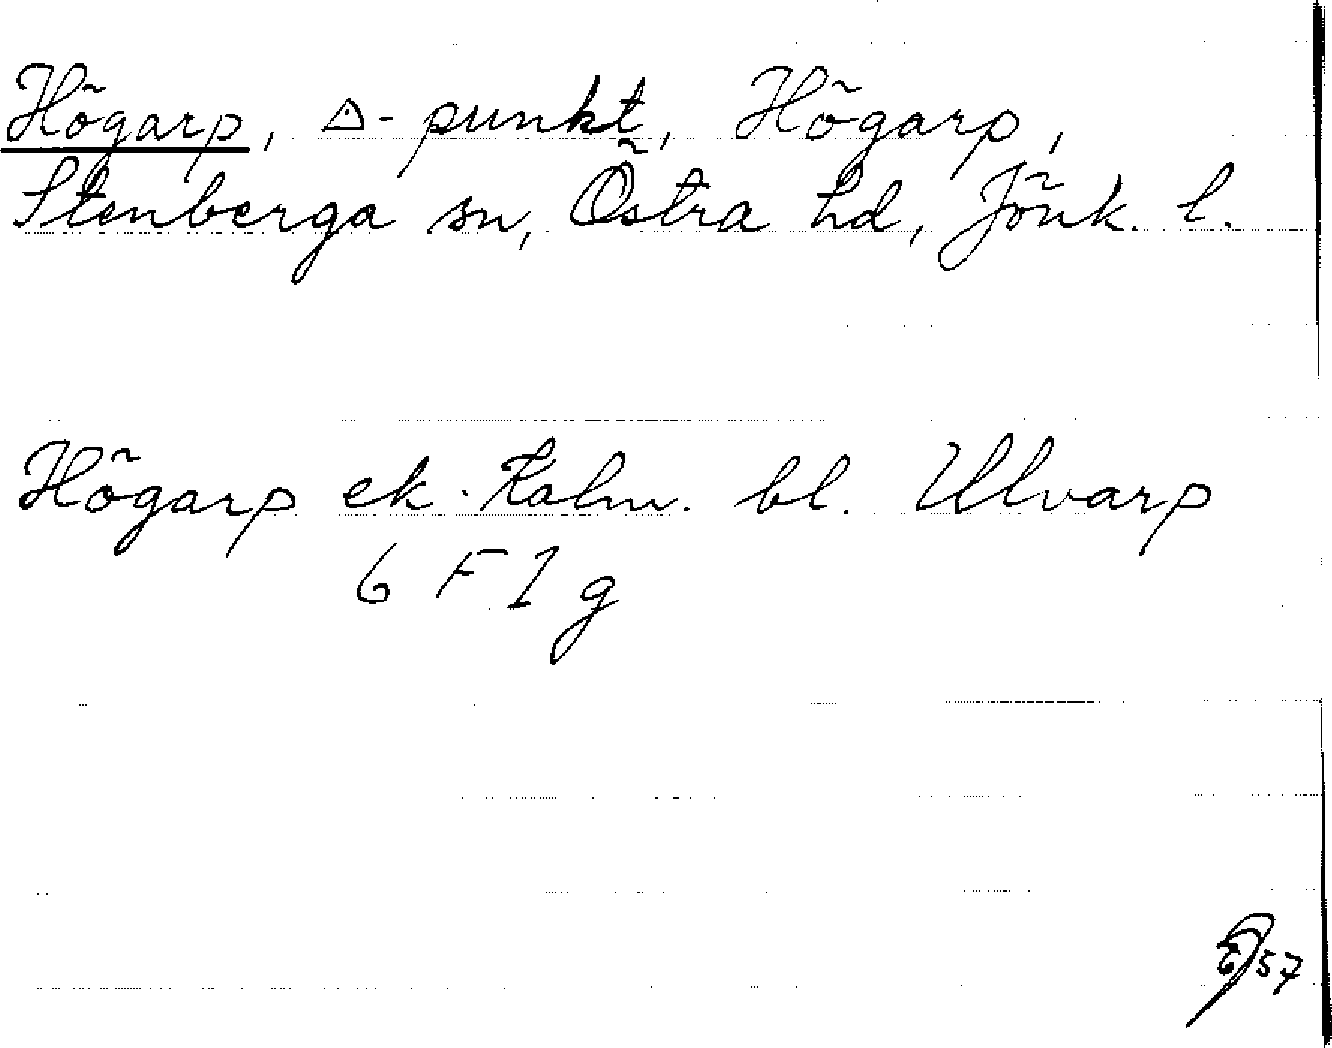 Högarp, △-punkt, Högarp,
Stenberga sn, Östra hd, Jönk. l.
Högarp ek. Kalm. bl. Ulvarp
6 F 1 g
57